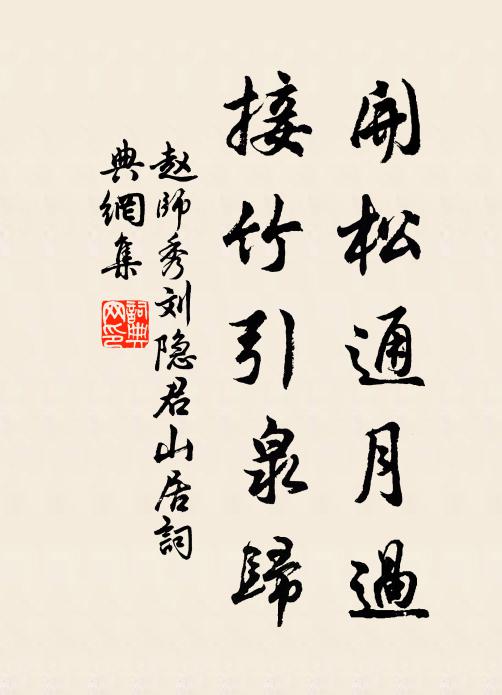 開松通月過
接竹引泉歸
赵師秀刘隐君山居詞
典網集
詞典
网印